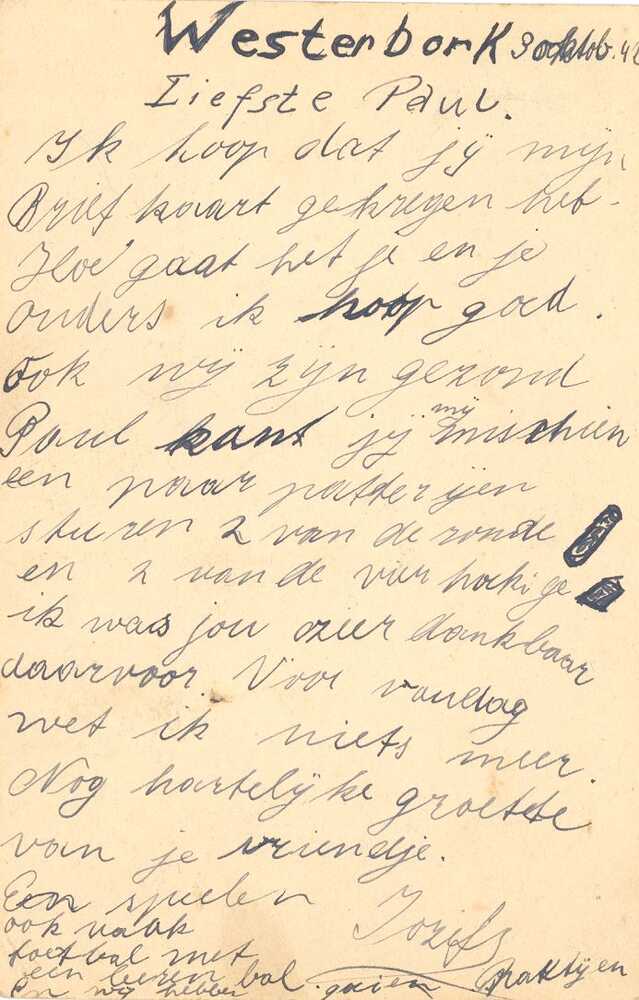 Westerbork 9 oktob. 42
Liefste Paul.
Ik hoop dat jij mijn
Brief kaart gekregen heb-
Hoe gaat het je en je
ouders ik hoop goed.
Ook wij zijn gezond
Paul kant jij mij mischien
een paar patterijen
sturen 2 van de ronde
en 2 van de vier hoekige
ik was jou zeer dankbaar
daarvoor Voor vandag
wet ik niets meer.
Nog hartelijke groette
van je vriendje.
En spielen Jozefs
ook vaak
foetbal met
een leeren bal.
En wij hebben Praktijen